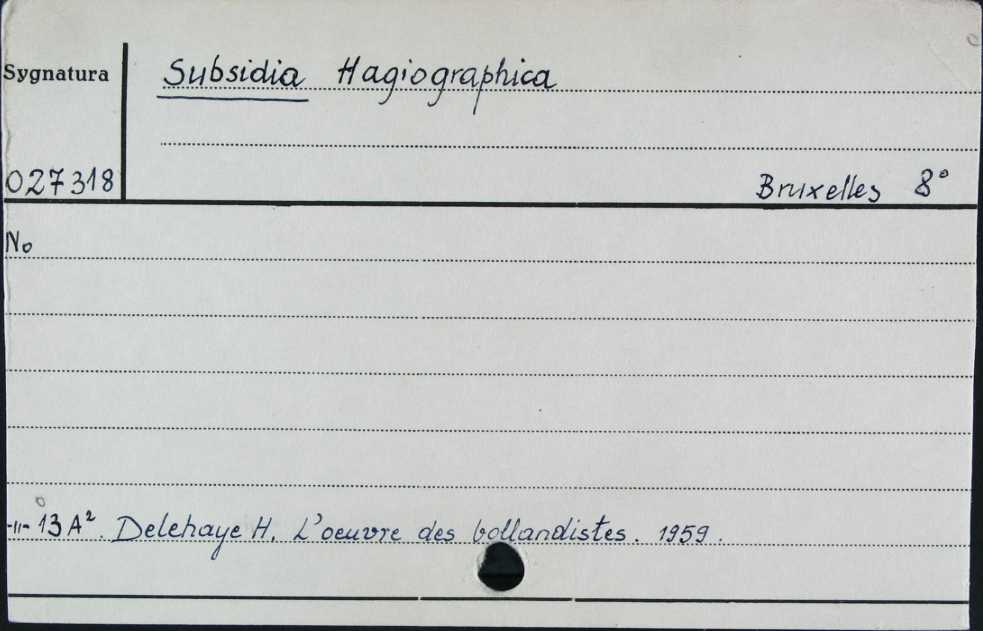 Sygnatura
Subsidia Hagiographica
027318
Bruxelles 8°
No
-"- 13 A². Delehaye H. L'oeuvre des bollandistes. 1959.